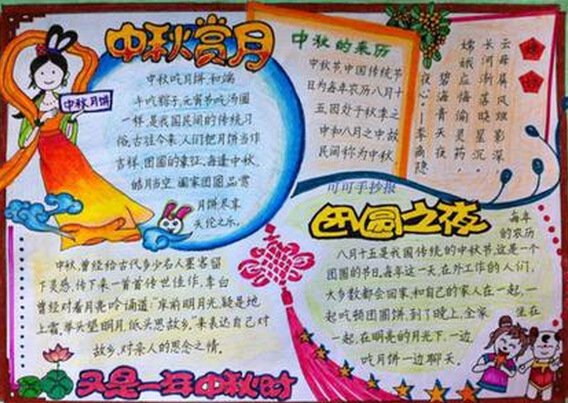 中秋赏月
中秋月饼
中秋吃月饼,和端
午吃粽子,元宵节吃汤圆
一样,是我国民间的传统习
俗,古往今来,人们把月饼当作
吉祥、团圆的象征,每逢中秋,
皓月当空,阖家团圆,品赏
月饼,尽享
天伦之乐。
中秋的来历
中秋节中国传统节
日为每年农历八月十
五,因处于秋季之
中和八月之中故
民间称为中秋
嫦娥
云母屏风烛影深,
长河渐落晓星沉。
嫦娥应悔偷灵药,
碧海青天夜
夜心。—李商隐
可可手抄报
团圆之夜
每年
的农历
八月十五是我国传统的中秋节,这是一个
团圆的节日,每年这一天,在外工作的人们,
大多数都会回家,和自己的家人在一起,一
起吃顿团圆饭,到了晚上,全家 坐在
一起,在明亮的月光下,一边
吃月饼一边聊天.
中秋,曾经给古代多少名人墨客留
下灵感,传下来一首首传世佳作,李白
曾经对着月亮吟诵道:"床前明月光,疑是地
上霜,举头望明月,低头思故乡。"来表达自己对
故乡,对亲人的思念之情。
又是一年中秋时